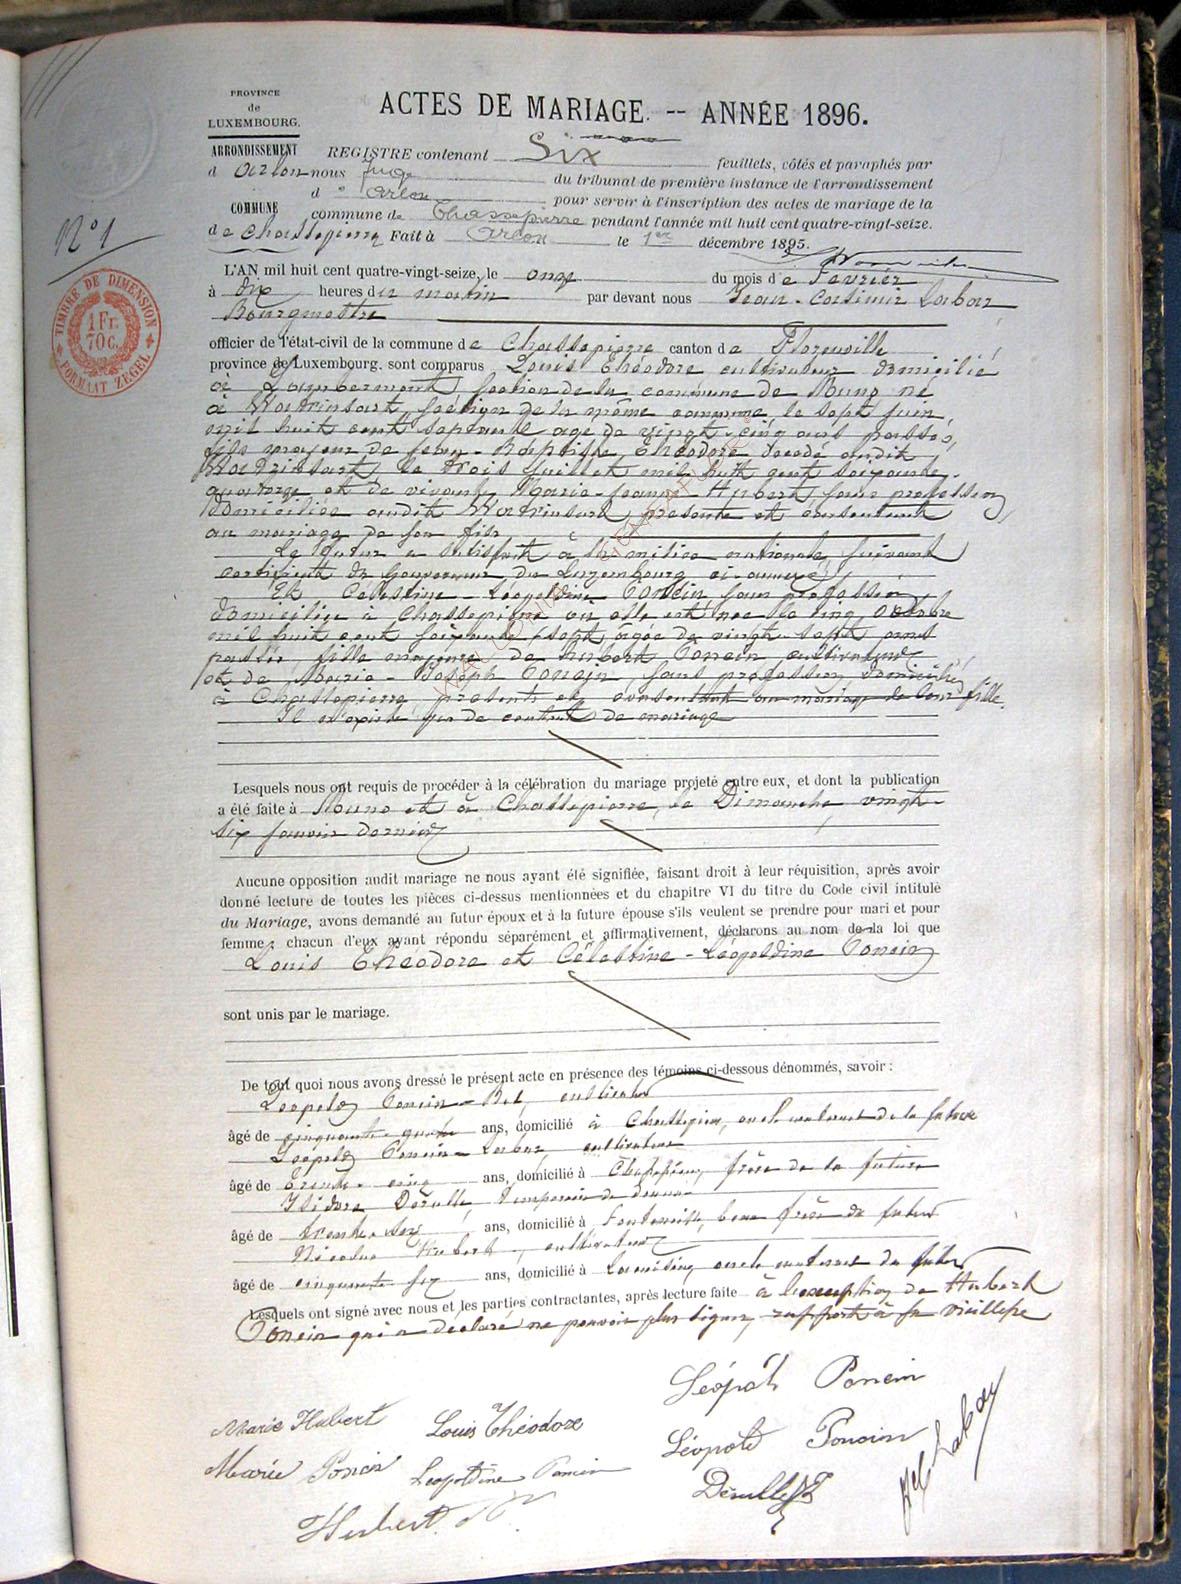 PROVINCE
de
LUXEMBOURG.
ACTES DE MARIAGE. -- ANNÉE 1896.
ARRONDISSEMENT
d'Arlon
COMMUNE
de Chassepierre
REGISTRE contenant Six feuillets, côtés et paraphés par
nous Juge du tribunal de première instance de l'arrondissement
d'Arlon pour servir à l'inscription des actes de mariage de la
commune de Chassepierre pendant l'année mil huit cent quatre-vingt-seize.
Fait à Arlon le 1er décembre 1895.
N° 1
TIMBRE DE DIMENSION
1 Fr.
70 c.
FORMAAT ZEGEL
L'AN mil huit cent quatre-vingt-seize, le onze du mois de Février
à dix heures du matin par devant nous Jean-Casimir Labar
Bourgmestre
officier de l'état-civil de la commune de Chassepierre canton de Florenville
province de Luxembourg. sont comparus Louis Théodore cultivateur domicilié
à Lambermont, section de la commune de Muno né
à Watrinsart, section de la même commune, le sept juin
mil huit cent septante age de vingt-cinq ans passés,
fils majeur de feu Baptiste Théodore décédé audit
Watrinsart, le trois juillet mil huit cent soixante
quatorze et de vivante Marie-Jeanne Hubert, sans profession
domiciliée audit Watrinsart, présente et consentant
au mariage de son fils
Le futur a satisfait à la milice nationale, suivant
certificat du Gouverneur du Luxembourg ci-annexé,
Et Celestine-Léopoldine Poncin, sans profession,
domiciliée à Chassepierre où elle est née le cinq Octobre
mil huit cent soixante sept, âgée de vingt-sept ans
passés, fille majeure de Hubert Poncin cultivateur
et de Marie-Joseph Poncin, sans profession, domiciliés
à Chassepierre, présents et consentant au mariage de leur fille.
Il n'existe pas de contrat de mariage
Lesquels nous ont requis de procéder à la célébration du mariage projeté entre eux, et dont la publication
a été faite à Muno et à Chassepierre, le Dimanche vingt-
six janvier dernier
Aucune opposition audit mariage ne nous ayant été signifiée, faisant droit à leur réquisition, après avoir
donné lecture de toutes les pièces ci-dessus mentionnées et du chapitre VI du titre du Code civil intitulé
du Mariage, avons demandé au futur époux et à la future épouse s'ils veulent se prendre pour mari et pour
femme; chacun d'eux ayant répondu séparément et affirmativement, déclarons au nom de la loi que
Louis Théodore et Célestine-Léopoldine Poncin
sont unis par le mariage.
De tout quoi nous avons dressé le présent acte en présence des témoins ci-dessous dénommés, savoir :
Léopold Poncin cultivateur
âgé de cinquante quatre ans, domicilié à Chassepierre, oncle maternel de la future
Léopold Poncin-Labar, cultivateur
âgé de trente cinq ans, domicilié à Chassepierre, frère de la future
Isidore Dérulle,
âgé de trente six ans, domicilié à Fontenoille, beau frère du futur
Nicolas Hubert, cultivateur
âgé de cinquante six ans, domicilié à oncle maternel du futur
Lesquels ont signé avec nous et les parties contractantes, après lecture faite à l'exception de Hubert
Poncin qui a déclaré ne pouvoir plus signer, rapport à sa vieillesse
Léopold Poncin
Marie Hubert Louis Théodore Léopold Poncin
Marie Poncin Léopoldine Poncin Dérulle
Hubert N
Labar